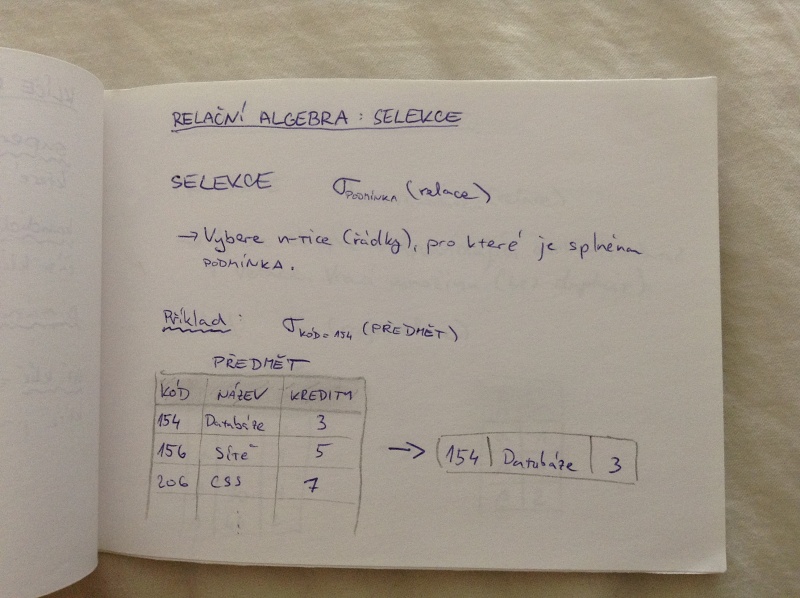 RELAČNÍ ALGEBRA : SELEKCE
SELEKCE σPODMÍNKA (relace)
→ Vybere n-tice (řádky), pro které je splněna
PODMÍNKA.
Příklad : σKÓD = 154 (PŘEDMĚT)
PŘEDMĚT
KÓD NÁZEV KREDITY
154 Databáze 3
156 Sítě 5
206 CSS 7
→ 154 Databáze 3